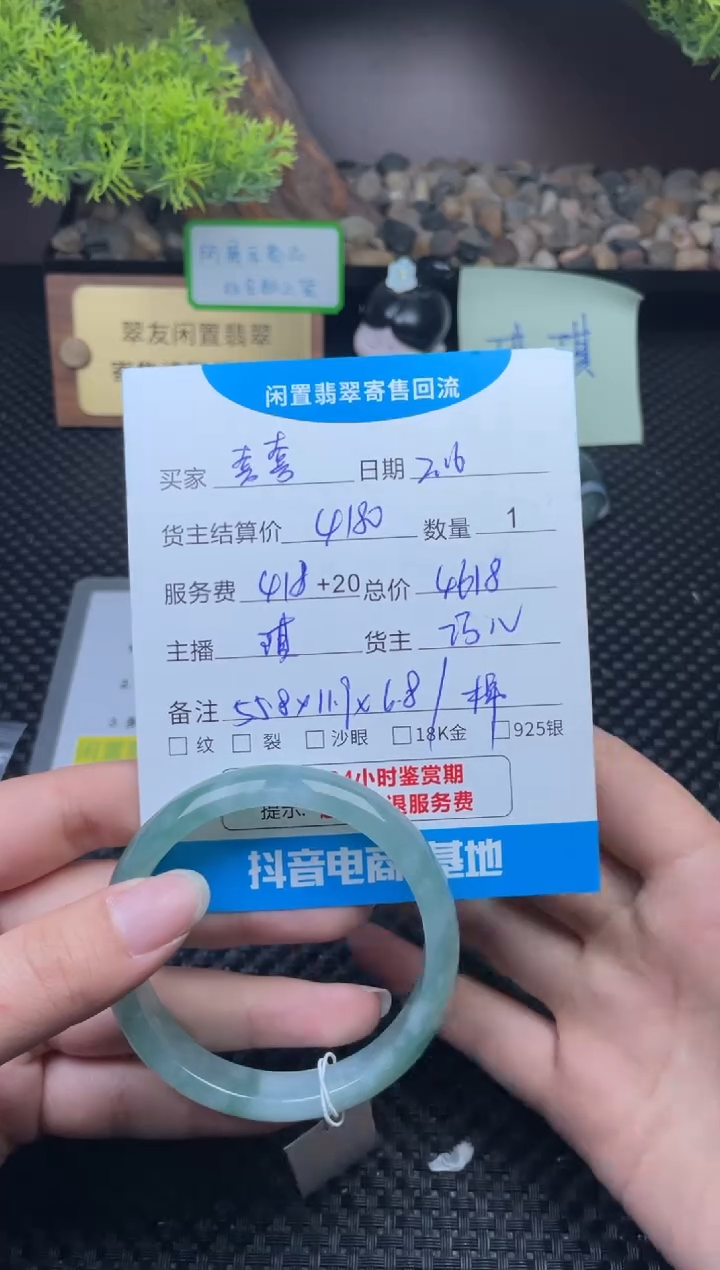 翠友闲置翡翠
闲置翡翠寄售回流
买家 喜喜 日期 2.16
货主结算价 4180 数量 1
服务费 418 +20 总价 4618
主播 琪 货主
备注 55.8x11.9x6.8/
纹 裂 沙眼 18K金 925银
4小时鉴赏期
提示: 退服务费
抖音电商 基地
琪